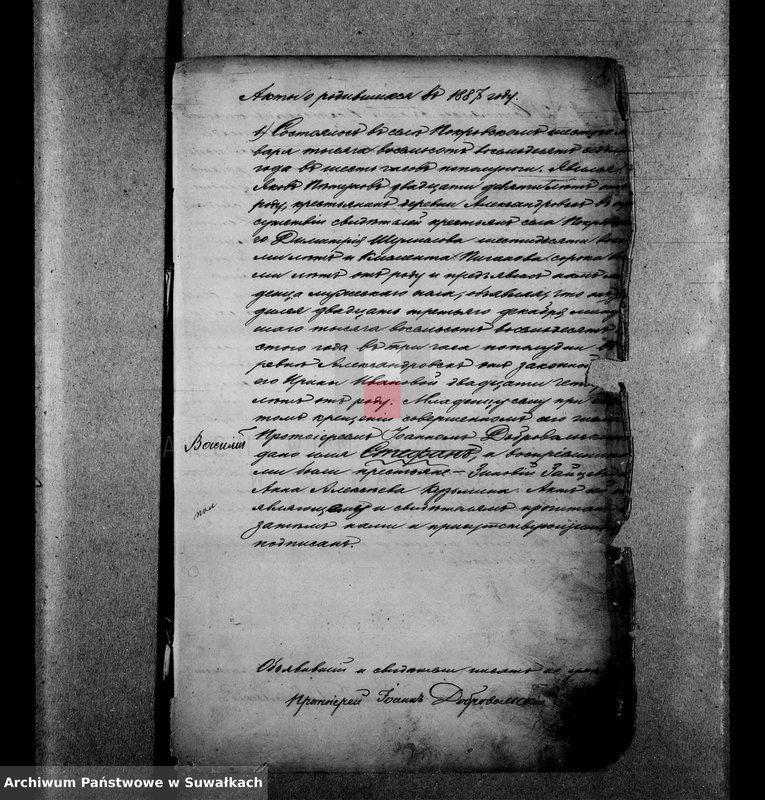 Акты о родившихся въ 1887 году.
1) Состоялось въ селѣ Покровскомъ шестого
варя тысяча восемьсотъ восемьдесятъ
года въ шесть часовъ пополудни. Явился
Яковъ двадцати девяти лѣтъ отъ
роду, крестьянинъ деревни Александровскъ въ при
сутствіи свидѣтелей крестьянъ села Покров
го Димитрія Шумилова шестидесяти вось
ми лѣтъ и Климента сорока
ми лѣтъ отъ роду и предъявилъ намъ мла
денца мужескаго пола, объявляя, что онъ
дился двадцать третьяго декабря мину
шаго тысяча восемьсотъ восемьдесятъ
стого года въ три часа пополудни въ
ревнѣ Александровскъ отъ законной
его Ирины Ивановой двадцати
лѣтъ отъ роду. Младенцу сему при
томъ крещеніи совершенномъ сего числа
Протоіереемъ Іоанномъ Добровольскимъ
Василій
дано имя Стефанъ, а воспріемника
ми были крестьяне – Зиновій Зайцевъ
Анна Алексѣева Кузьмина. Актъ сей
являющему и свидѣтелямъ прочитанъ
затѣмъ нами и присутствующими
подписанъ.
Объявившій и свидѣтели писать не
Протоіерей Іоаннъ Добровольскій
Archiwum Państwowe w Suwałkach